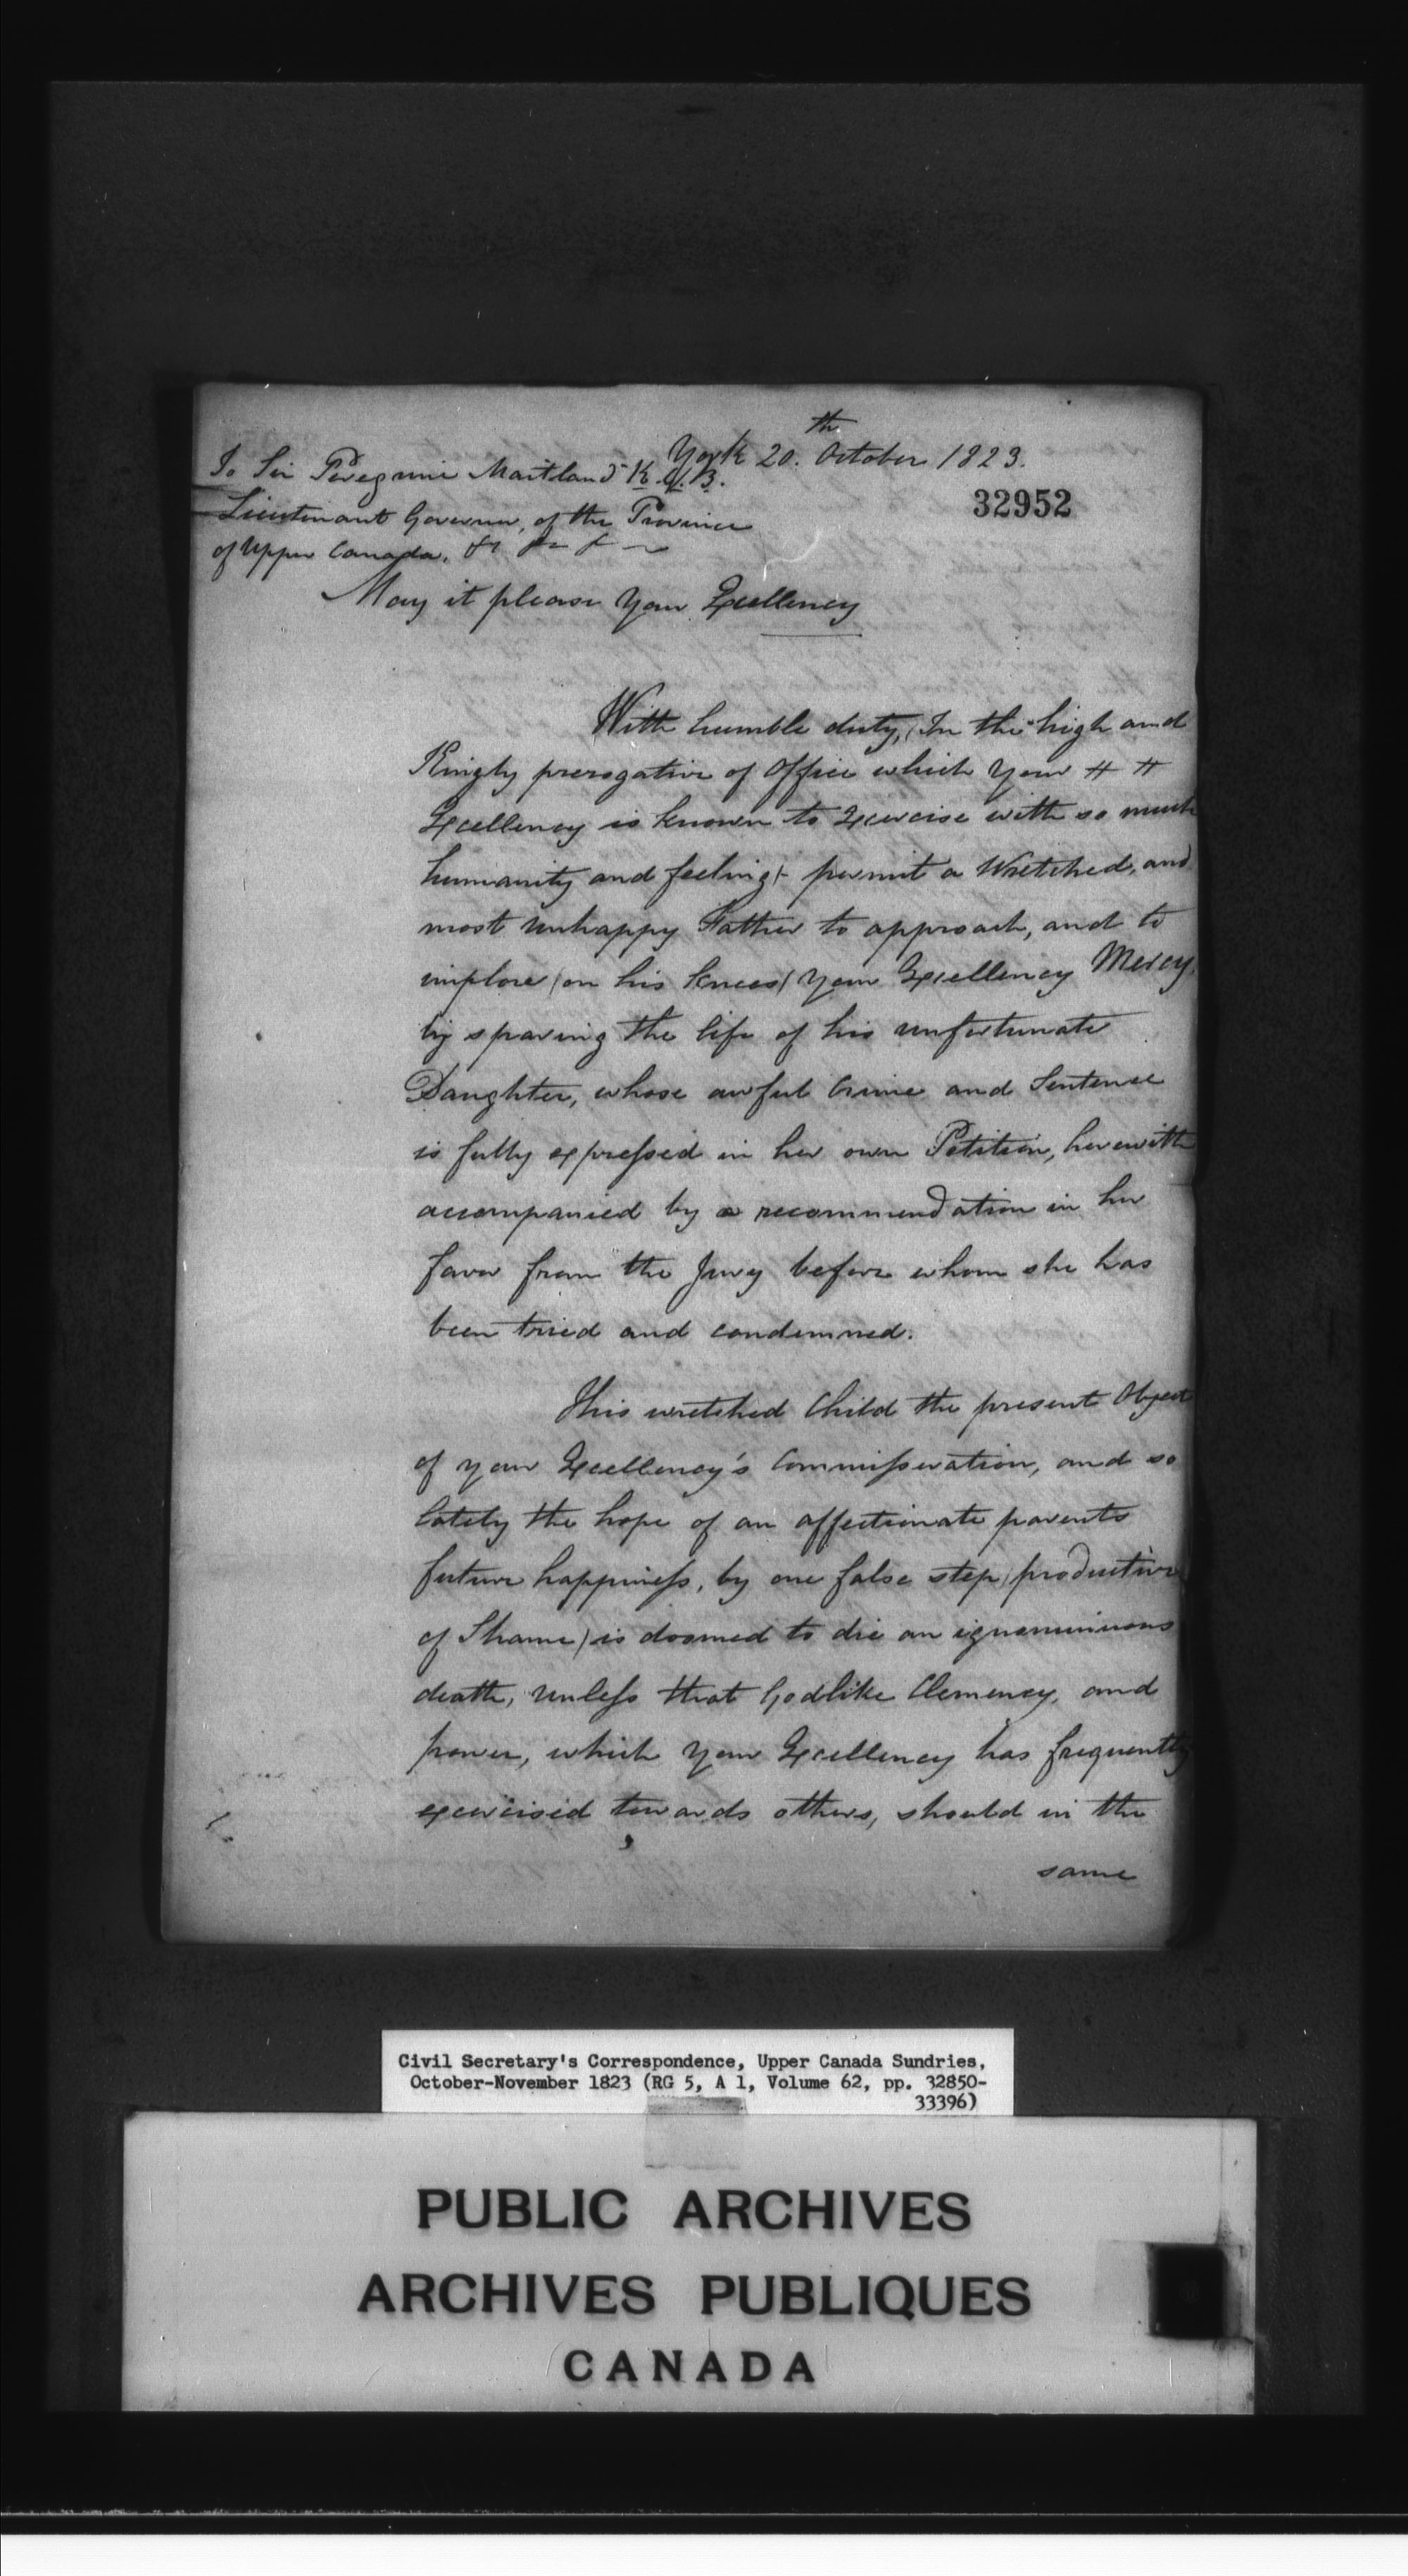 York 20.th October 1823.
To Sir Peregrine Maitland K.C.B.
32952
Lieutenant Governor, of the Province
of Upper Canada, &c &c &c
May it please Your Excellency
With humble duty, (In the high and
Kingly prerogative of Office which Your
Excellency is known to Exercise with so much
humanity and feeling)- permit a Wretched, and
most unhappy Father to approach, and to
implore (on his knees) Your Excellency Mercy,
by sparing the life of his unfortunate
Daughter, whose awful Crime and Sentence
is fully expressed in her own Petition, herewith
accompanied by a recommendation in her
favor from the Jury before whom she has
been tried and condemned.
This wretched Child the present Object
of your Excellency's Commisseration, and so
lately the hope of an affectionate parents
future happiness, by one false step (productive
of Shame) is doomed to die an ignominious
death, unless that Godlike Clemency, and
power, which Your Excellency has frequently
exercised towards others, should in the
same
Civil Secretary's Correspondence, Upper Canada Sundries,
October-November 1823 (RG 5, A 1, Volume 62, pp. 32850-
33396)
PUBLIC ARCHIVES
ARCHIVES PUBLIQUES
CANADA